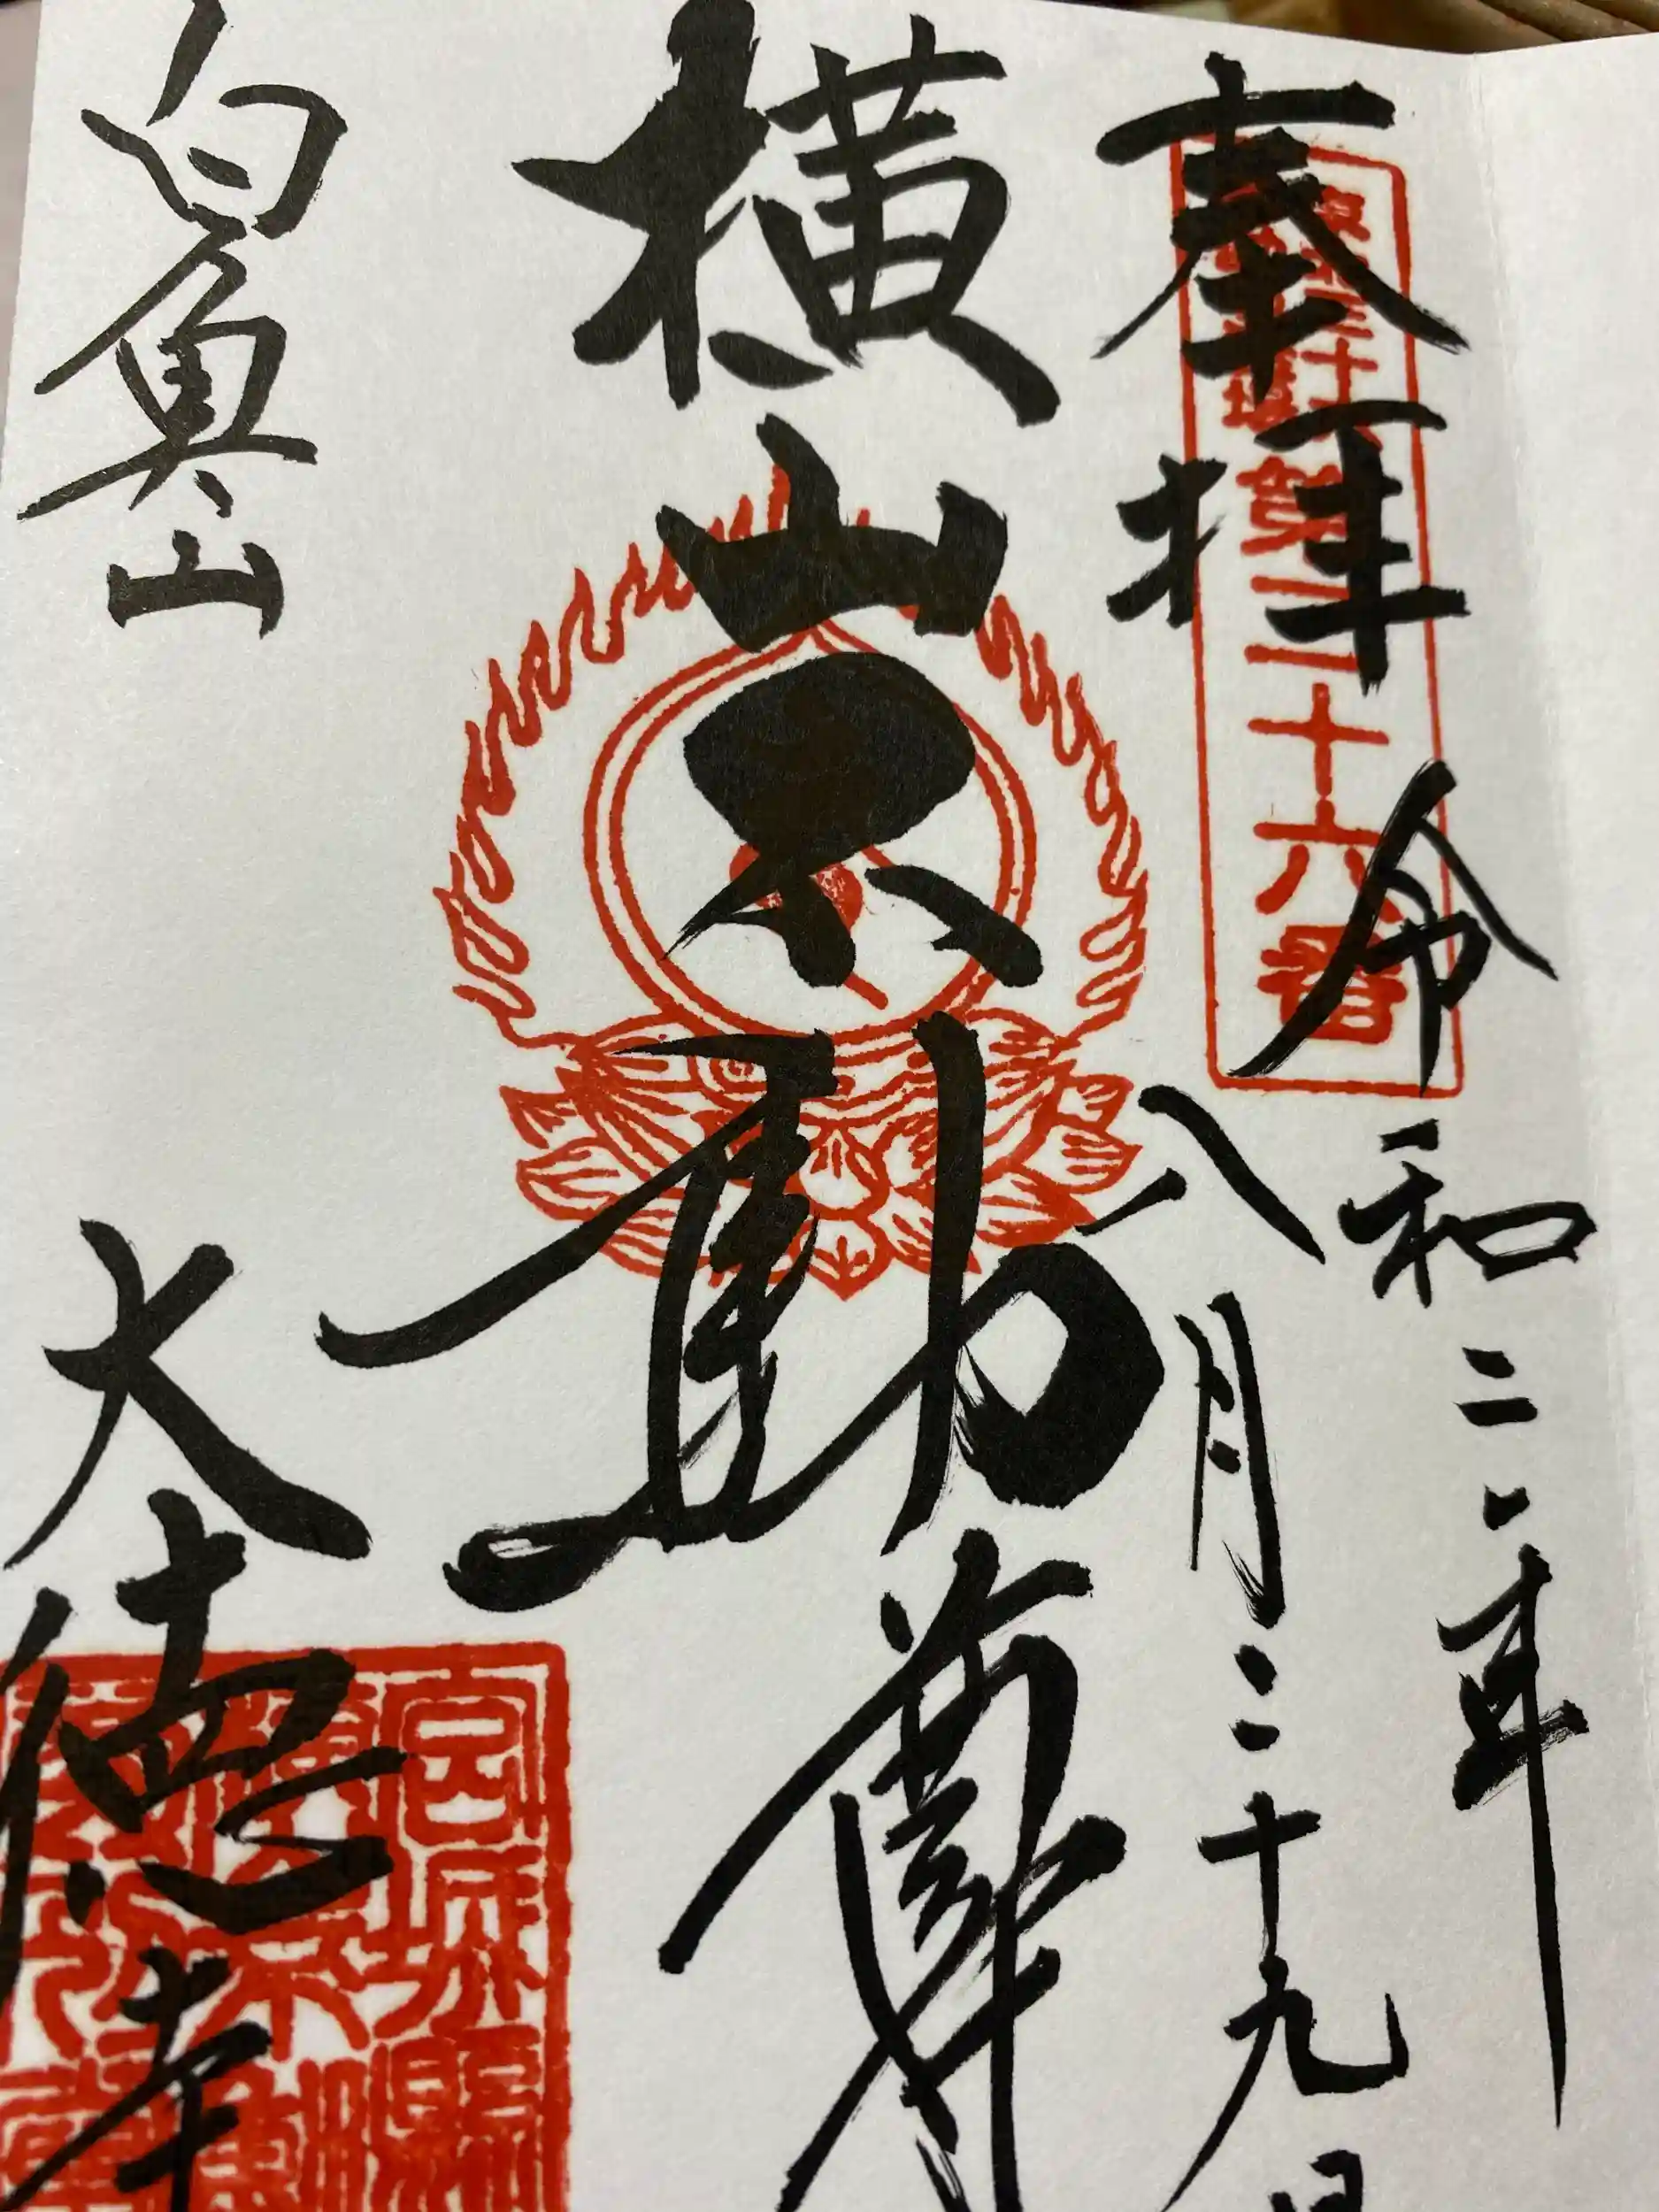 奉拝
第二十六番
令和二年
八月二十九日
横山不動尊
白魚山
大徳寺
宮城縣